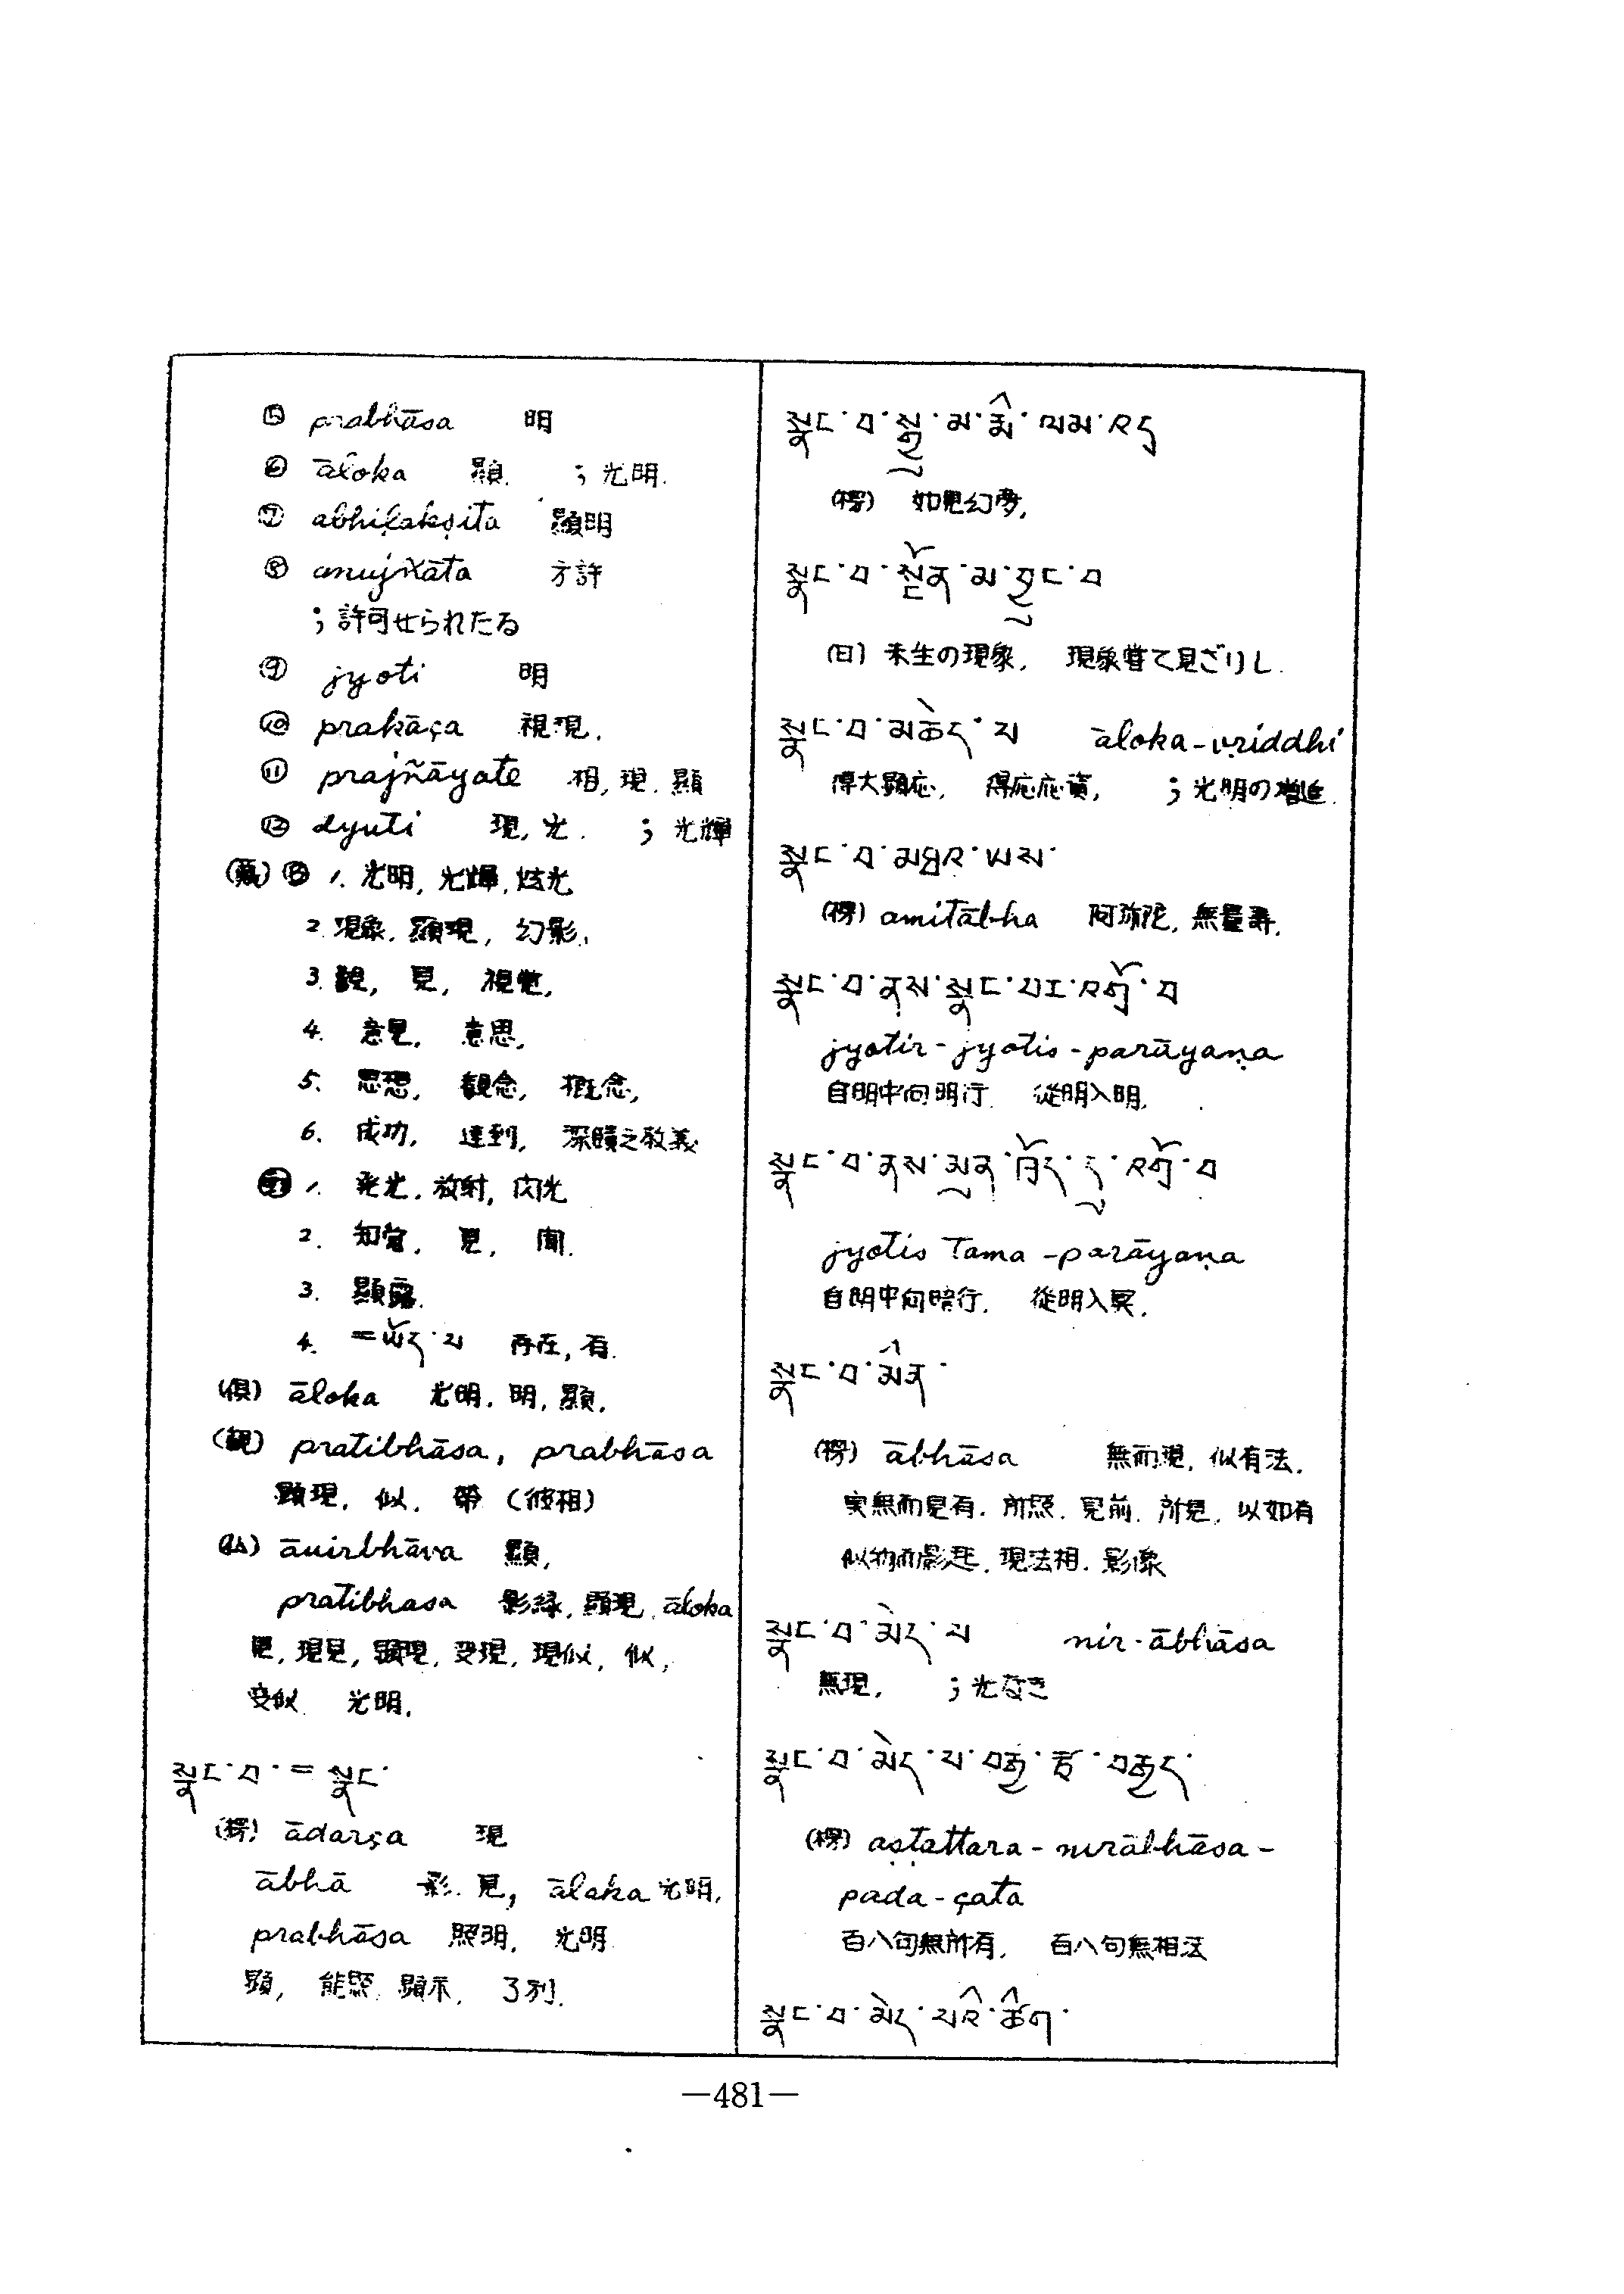 ⑤ prabhāsa 明
⑥ āloka 顕. ; 光明.
⑦ abhilakṣita 顯明
⑧ anujñāta 方許
; 許可せられたる
⑨ jyoti 明
⑩ prakāça 視現.
⑪ prajñāyate 相, 現. 顯
⑫ dyuti 現, 光. ; 光輝
1. 光明, 光輝, 炫光
2. 現象. 顕現, 幻影.
3. 觀, 見, 視覚,
4. 意見, 意思,
5. 思想, 観念, 概念,
6. 成功, 達到, 深賾之教義
1. 発光. 放射, 閃光
2. 知覚, 見, 聞.
3. 顯露.
4. =ཡོད་པ 存在, 有.
(倶) āloka 光明. 明, 顕.
(観) pratibhāsa, prabhāsa
顕現, 似, 帶 (彼相)
āvirbhāva 顕,
pratibhasa 影縁, 顕現, āloka
現見, 顕現, 変現, 現似, 似,
変似 光明.
སྣང་བ་ = སྣང་
(楞) ādarça 現
ābhā 影. 見, āloka 光明,
prabhāsa 照明, 光明
顕, 能照 顯示. 3列.
སྣང་བ་སྒྱུ་མ་རྨི་ལམ་འདྲ
(楞) 如見幻夢,
སྣང་བ་སྔོན་མ་བྱུང་བ
(日) 未生の現象, 現象嘗て見ざりし.
སྣང་བ་མཆེད་པ āloka-vṛiddhi
得大顕応, 得応応資, ; 光明の増進.
སྣང་བ་མཐའ་ཡས་
(楞) amitābha 阿弥陀, 無量壽.
སྣང་བ་ནས་སྣང་པར་འགྲོ་བ
jyotir-jyotis-parāyaṇa
自明中向明行. 従明入明.
སྣང་བ་ནས་མུན་ཁྲོད་དུ་འགྲོ་བ
jyotis Tama-parāyaṇa
自明中向暗行. 従明入冥.
སྣང་བ་མིན་
(楞) ābhāsa 無而現, 似有法.
実無而見有. 所照. 見前. 所見. 以如有
似物而影起. 現法相. 影像
སྣང་བ་མེད་པ nir-ābhāsa
無現, ; 光なき
སྣང་བ་མེད་པ་བརྒྱ་རྩ་བརྒྱད་
(楞) aṣṭattara-nirābhāsa-
pada-çata
百八句無所有, 百八句無相法
སྣང་བ་མེད་པའི་ཚིག་
—481—